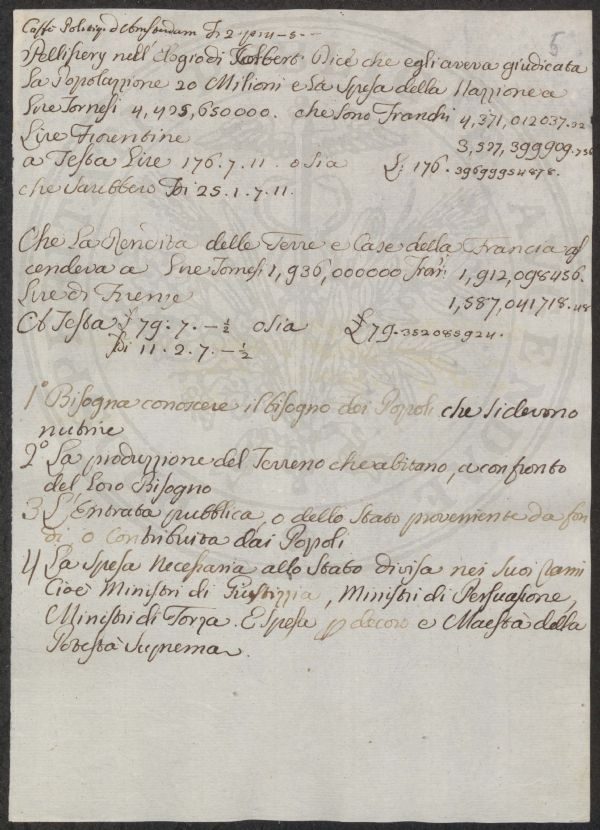 5
Caffè Politico d'Amsterdam
Pellissery nell'Elogio di Colbert Dice che egli aveva giudicata
La Popolazzione 20 Milioni e la Spesa della Nazzione a
Lire Tornesi 4,425,650000. che sono Franchi 4,371,012037.
Lire Fiorentine 3,527,399909.
a Testa Lire 176.7.11. o sia £ 176.39699954878.
che sarebbero 25.1.7.11.
Che La Rendita delle Terre e Case della Francia as
cendeva a Lire Tornesi 1,936,000000 Fran: 1,912,098456.
Lire di Firenze 1,587,041718.48
A Testa £ 79.7.-½ o sia £ 79.352085924.
11.2.7.-½
1° Bisogna conoscere il bisogno dei Popoli che si devono
nutrire
2° La produzzione del Terreno che abitano, a confronto
del Loro Bisogno
3 L'Entrata pubblica, o dello Stato proveniente da fon
di, o contribuita dai Popoli
4 La Spesa Necessaria allo Stato divisa nei suoi rami
Cioè Ministri di Giustizzia, Ministri di Persuasione,
Ministri di Forza. E spese p decoro e Maestà della
Potestà Suprema.